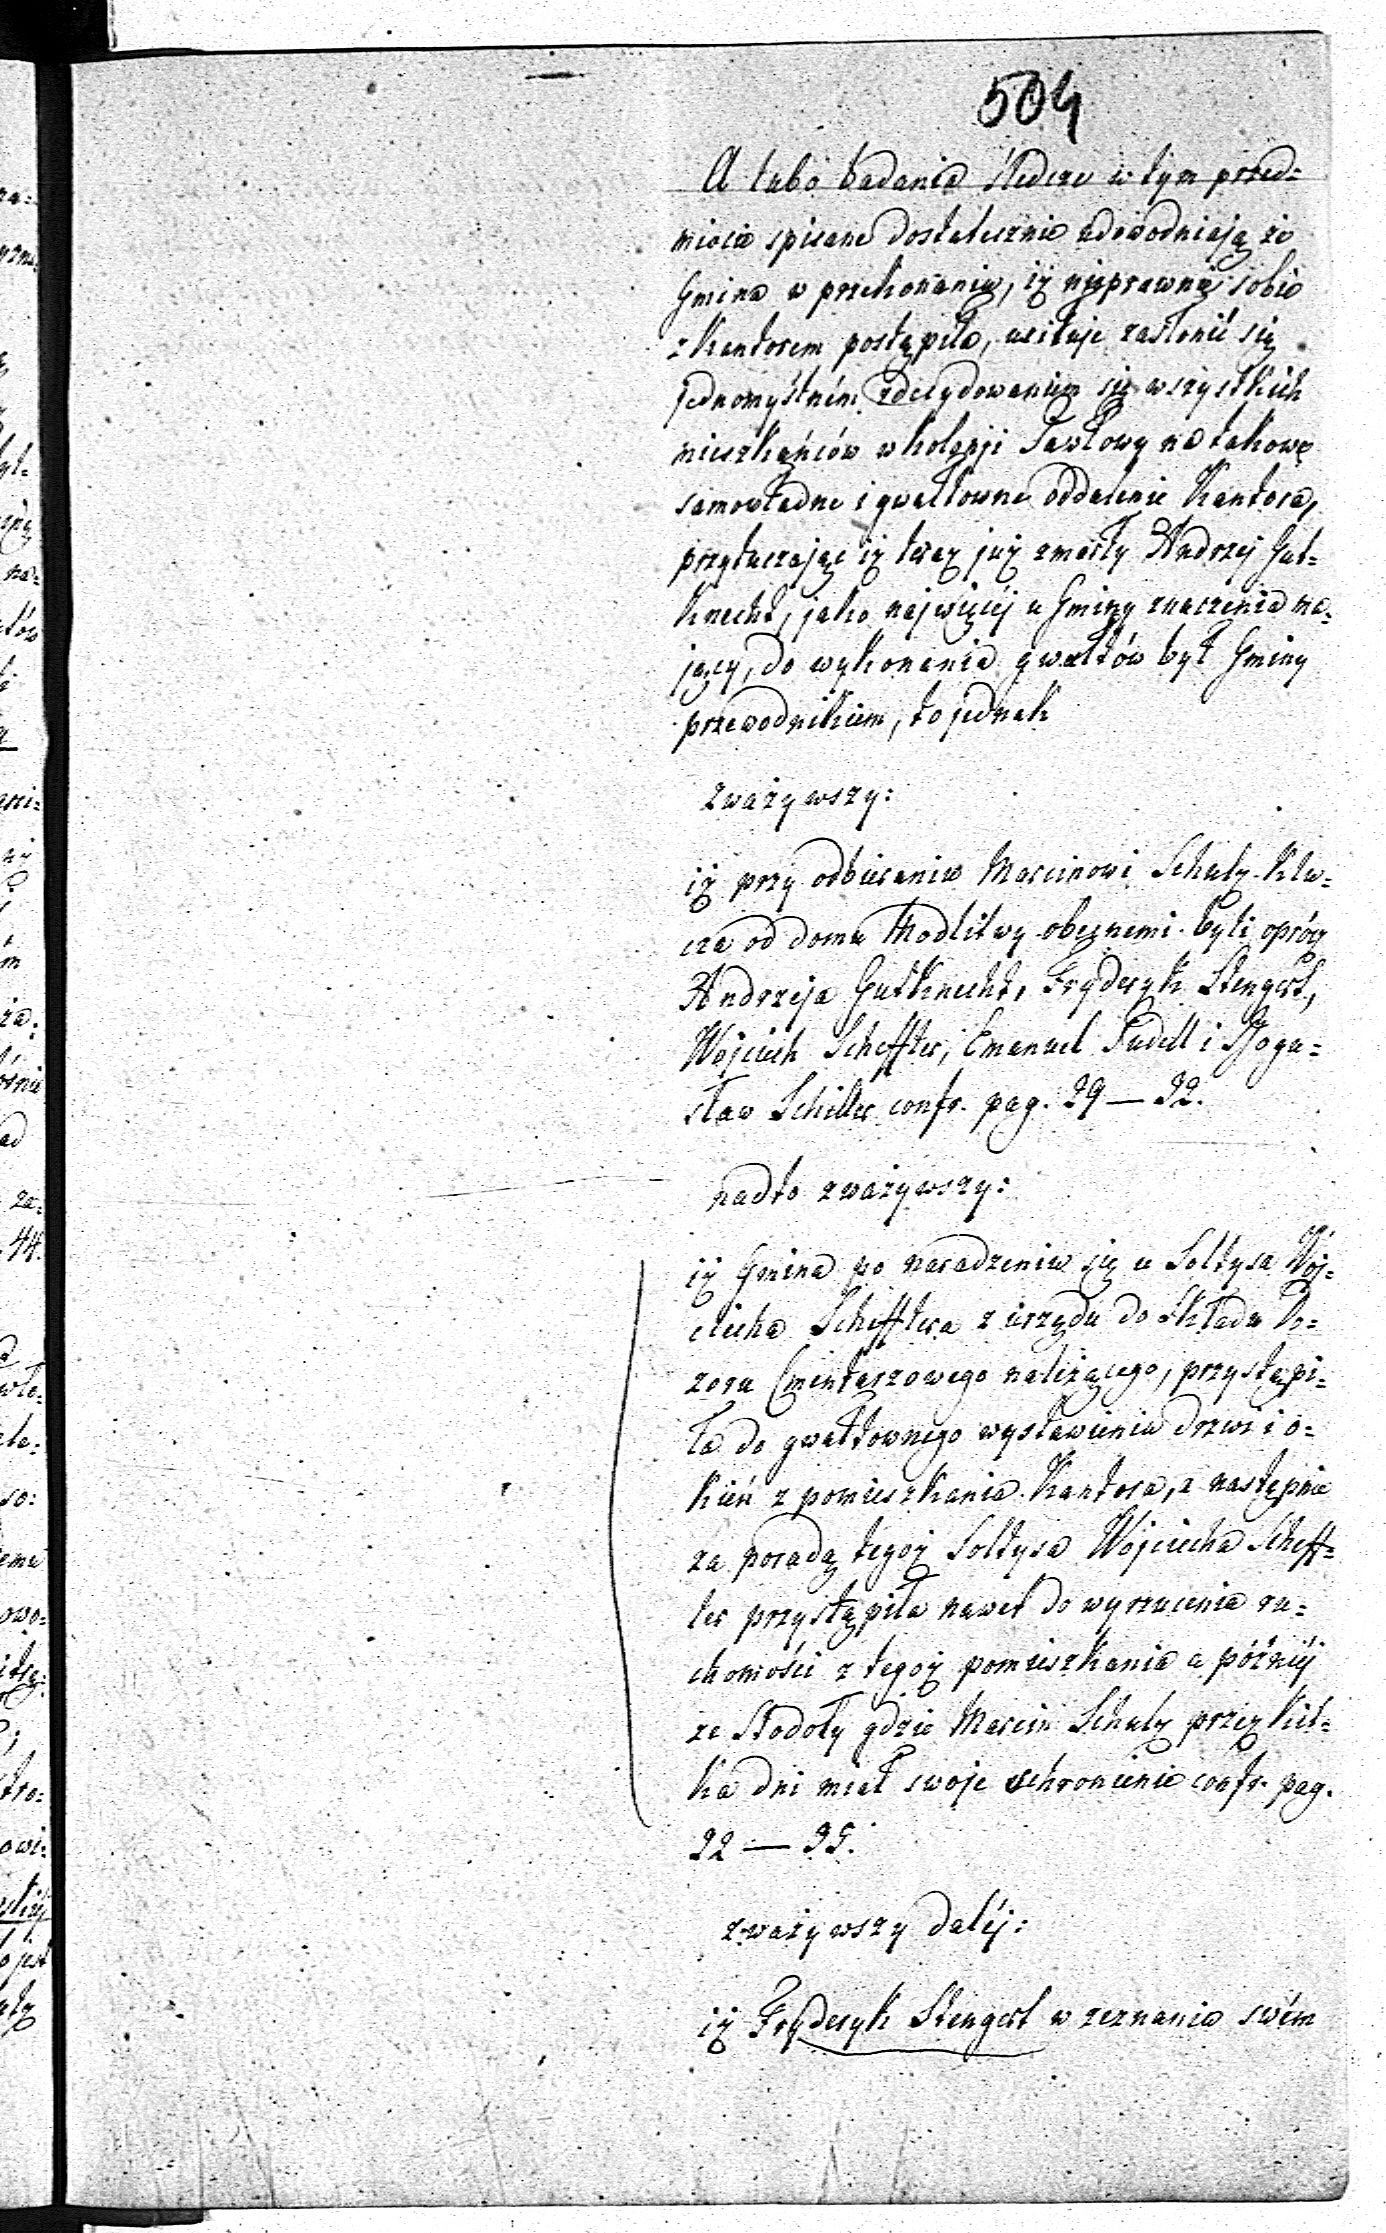 504
A lubo badania śledcze w tym przed=
miocie spisane dostatecznie udowodniają że
Gmina w przekonaniu, iż nieprawnie sobie
z Kantorem postąpiła, usiłuje zasłonić się
jednomyślném zdecydowaniem się wszystkich
mieszkańców w kolonji Pawłowy na takowe
samowładne i gwałtowne oddalenie Kantora,
przytaczając iż teraz już zmarły Andrzej Gut=
knecht, jako najwięcéj u Gminy znaczenia ma=
jący, do wykonania gwałtów był Gminy
przewodnikiem, to jednak
zważywszy:
iż przy odbieraniu Marcinowi Schulz klu=
cza od domu Modlitwy obecnemi byli oprócz
Andrzeja Gutknecht, Fryderyk Stengert,
Wojciech Scheffler, Emanuel Padell i Bogu=
sław Schiller confr. pag. 29 — 32.
nadto zważywszy:
iż Gmina po naradzeniu się u Sołtysa Woj=
ciecha Schefflera z urzędu do składu Do=
zoru Cmentarzowego należącego, przystąpi=
ła do gwałtownego wystawienia drzwi i o=
kień z pomieszkania Kantora, a następnie
za poradą tegoż Sołtysa Wojciecha Scheff=
ler przystąpiła nawet do wyrzucenia ru=
chomości z tegoż pomieszkania a późniéj
ze Stodoły gdzie Marcin Schulz przez kil=
ka dni miał swoje schronienie confr. pag.
32 — 35.
zważywszy daléj:
iż Fryderyk Stengert w zeznaniu swém